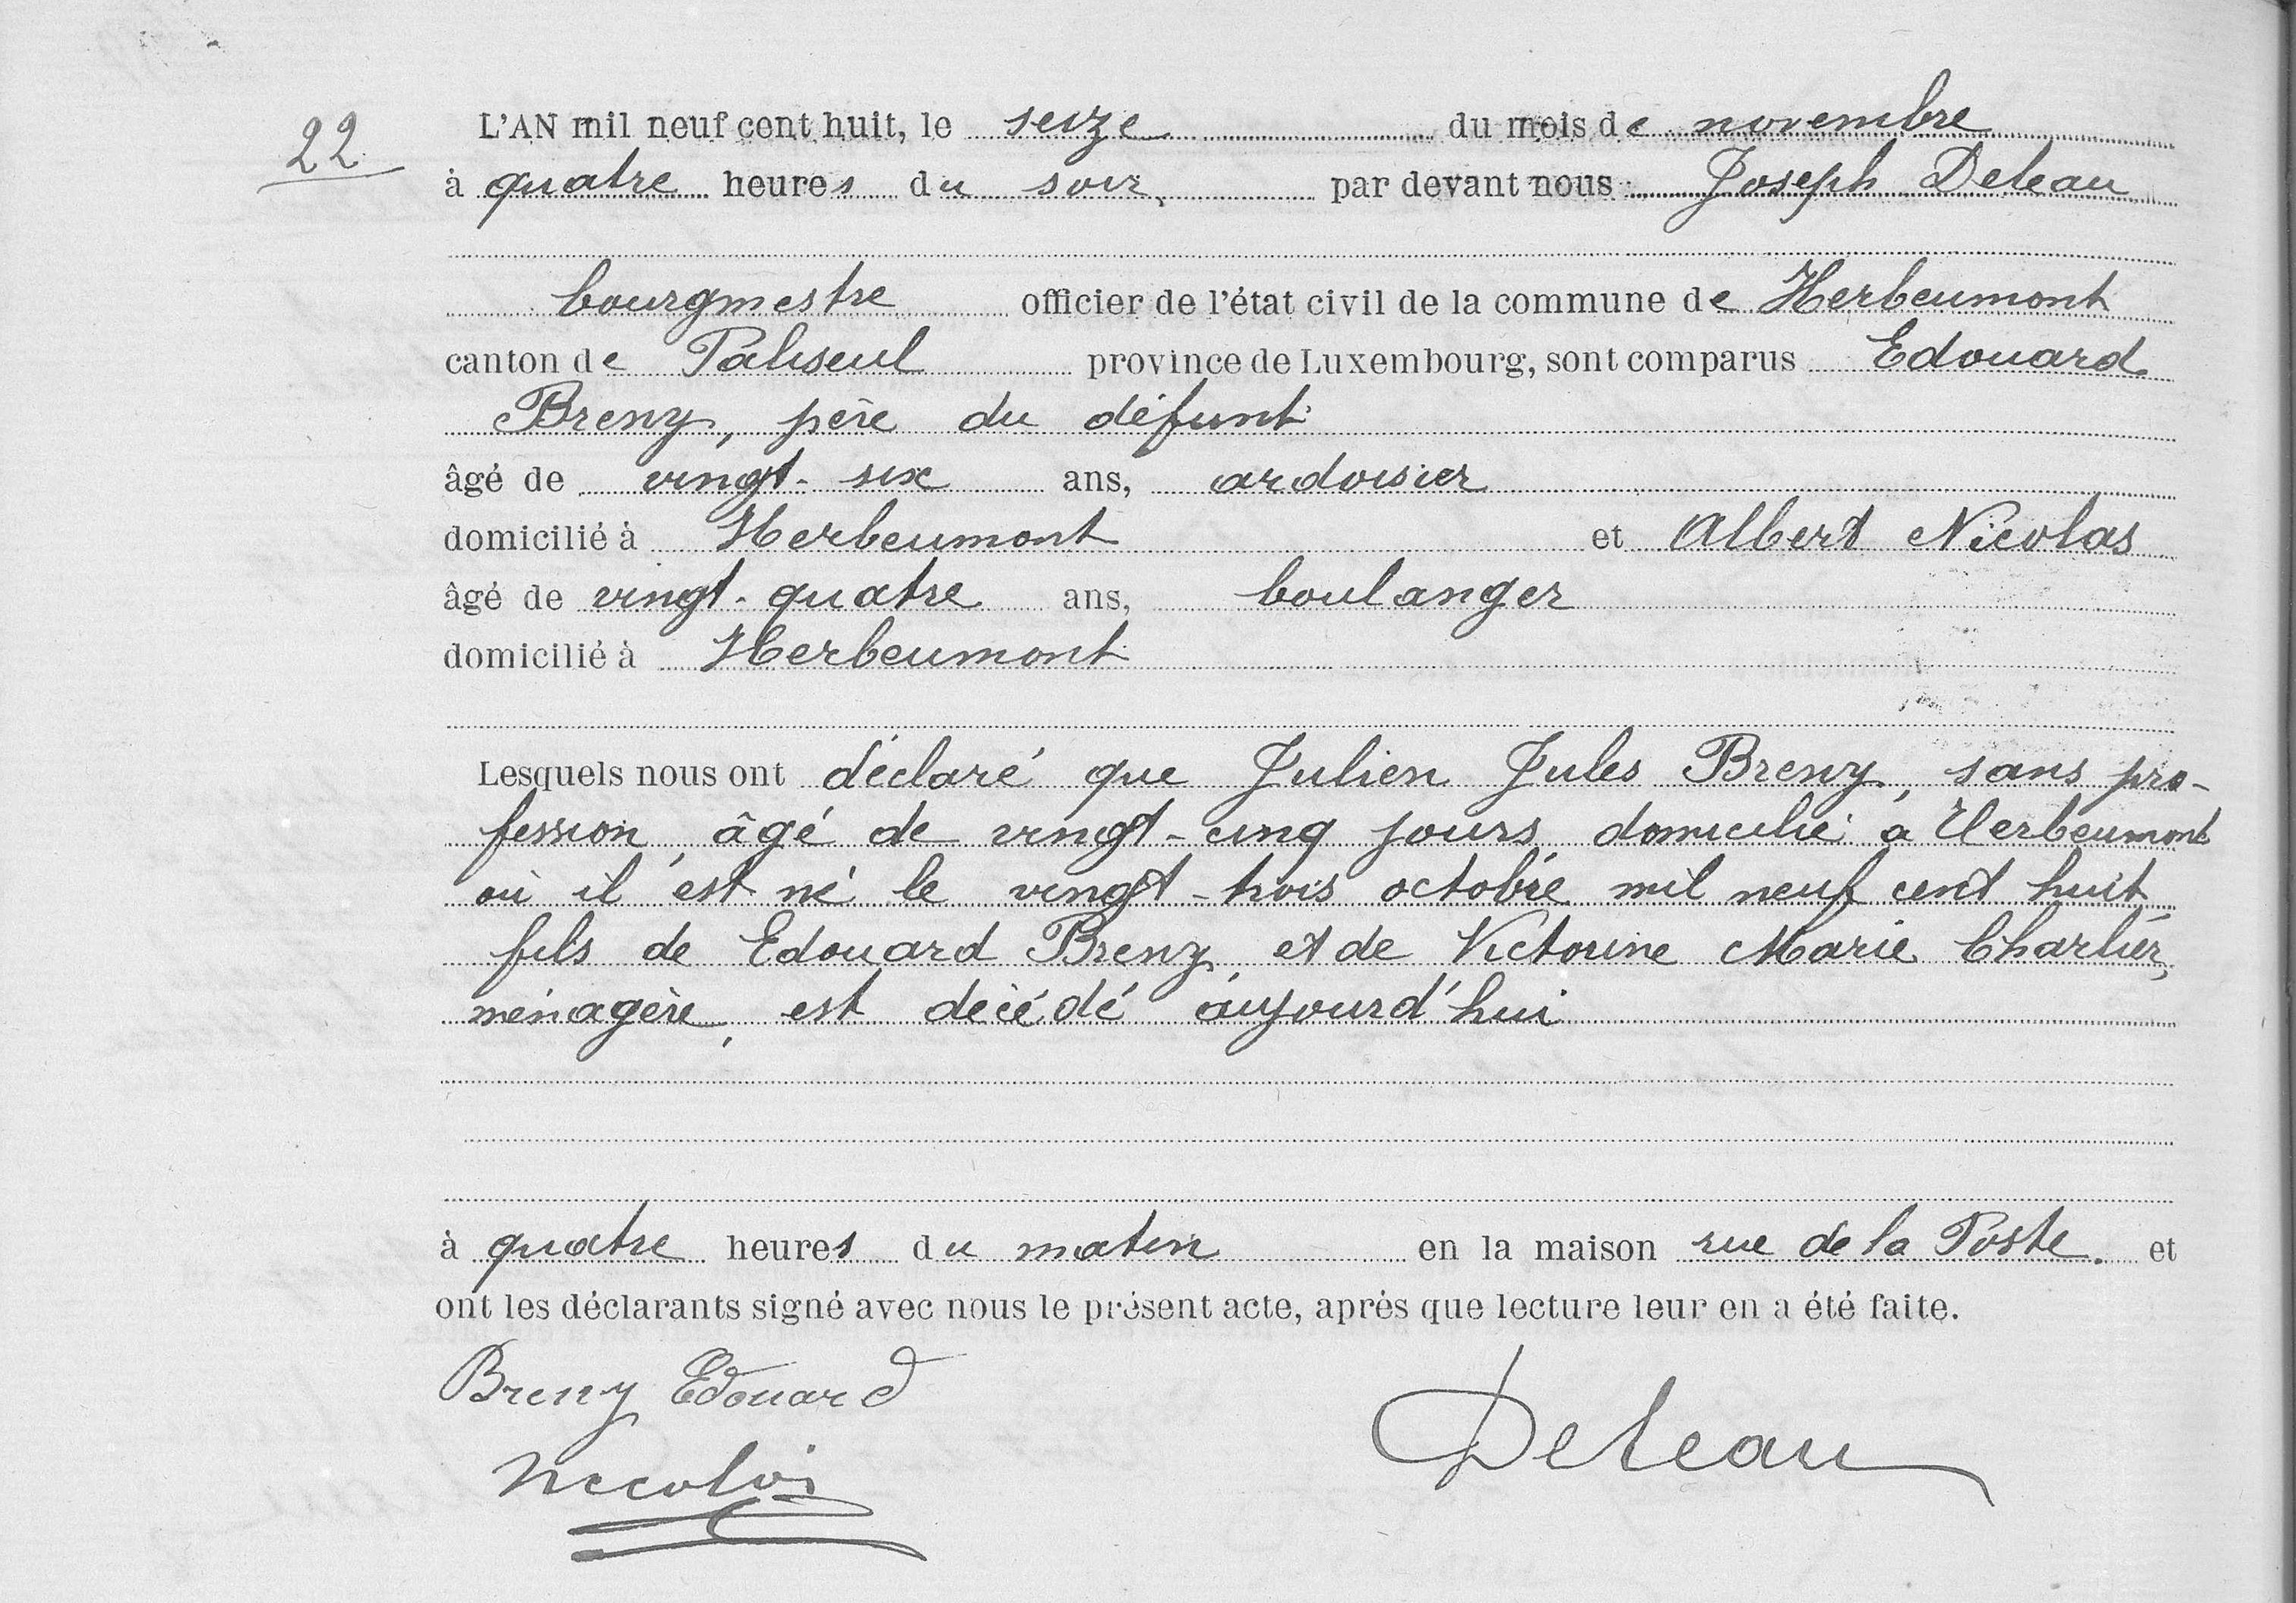 22
L'AN mil neuf cent huit, le seize du mois de novembre
à quatre heures du soir, par devant nous Joseph Deleau
bourgmestre officier de l'état civil de la commune de Herbeumont
canton de Paliseul province de Luxembourg, sont comparus Edouard
Breny, père du défunt
âgé de vingt-six ans, ardoisier
domicilié à Herbeumont et Albert Nicolas
âgé de vingt-quatre ans, boulanger
domicilié à Herbeumont
Lesquels nous ont déclaré que Julien Jules Breny, sans pro-
fession, âgé de vingt-cinq jours domicilié à Herbeumont
où il est né le vingt-trois octobre mil neuf cent huit
fils de Edouard Breny, et de Victorine Marie Charlier,
ménagère, est décédé aujourd'hui
à quatre heures du matin en la maison rue de la Poste. et
ont les déclarants signé avec nous le présent acte, après que lecture leur en a été faite.
Breny Edouard
Deleau
Nicolas